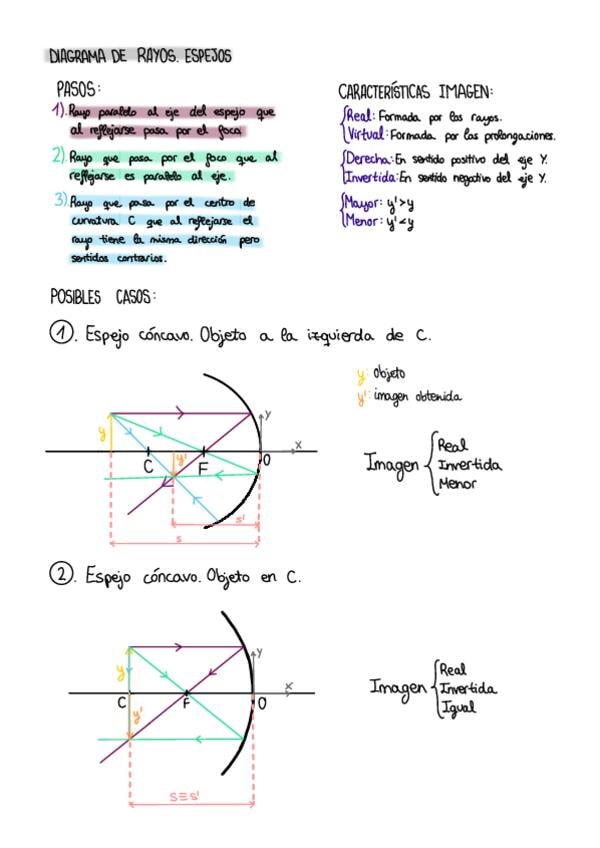 DIAGRAMA DE RAYOS. ESPEJOS
PASOS:
1). Rayo paralelo al eje del espejo que
al reflejarse pasa por el foco
2). Rayo que pasa por el foco que al
reflejarse es paralelo al eje.
3). Rayo que pasa por el centro de
curvatura C que al reflejarse el
rayo tiene la misma dirección pero
sentidos contrarios.
CARACTERÍSTICAS IMAGEN:
Real: Formada por los rayos.
Virtual: Formada por las prolongaciones.
Derecha: En sentido positivo del eje Y.
Invertida: En sentido negativo del eje Y.
Mayor: y'>y
Menor: y'<y
POSIBLES CASOS:
1. Espejo cóncavo. Objeto a la izquierda de C.
y: objeto
y': imagen obtenida
y
C
y'
F
O
y
x
s'
s
Imagen
Real
Invertida
Menor
2. Espejo cóncavo. Objeto en C.
y
C
y'
F
O
y
x
s≡s'
Imagen
Real
Invertida
Igual